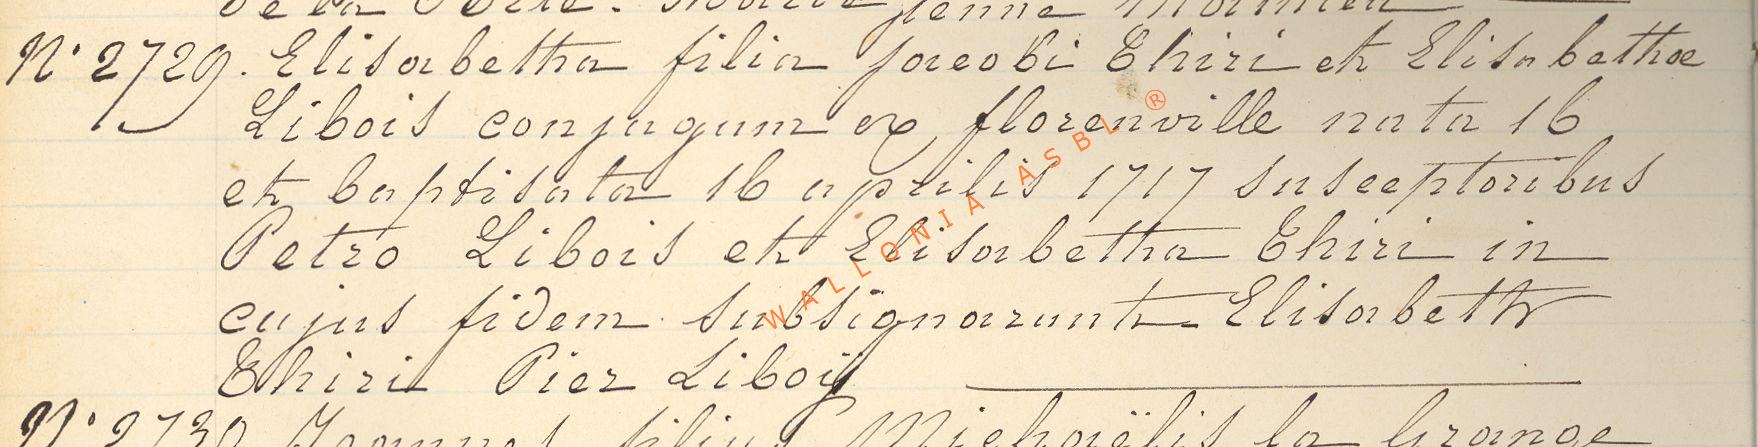 de la
N° 2729. Elisabetha filia jacobi Thiri et Elisabethae
Libois conjugum ex florenville nata 16
et baptisata 16 aprilis 1717 susceptoribus
Petro Libois et Elisabetha Thiri in
cujus fidem subsignarunt Elisabeth
Thiri Pier Liboÿ
N° 2730 Joannes filius Michaëlis la Grange
WALLONIA ASBL ®